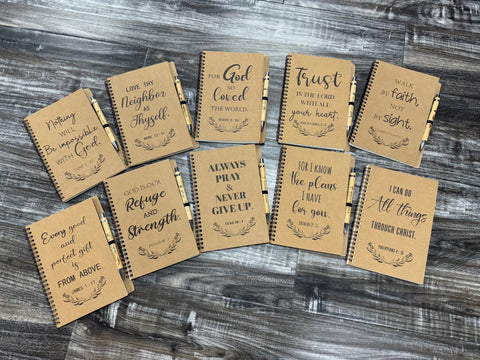 Nothing
WILL
Be impossible
WITH God.
LOVE THY
Neighbor
AS
Thyself.
FOR God
SO Loved
THE WORLD.
JOHN 3:16
Trust
IN THE LORD
WITH ALL
your heart.
WALK
BY faith,
NOT
BY sight.
Every good
and
perfect gift
is
FROM ABOVE.
JAMES 1:17
GOD IS OUR
Refuge
AND
Strength.
ALWAYS
PRAY
&
NEVER
GIVE UP.
FOR I KNOW
the plans
I HAVE
for you.
I CAN DO
All things
THROUGH CHRIST.
PHILIPPIANS 4:13